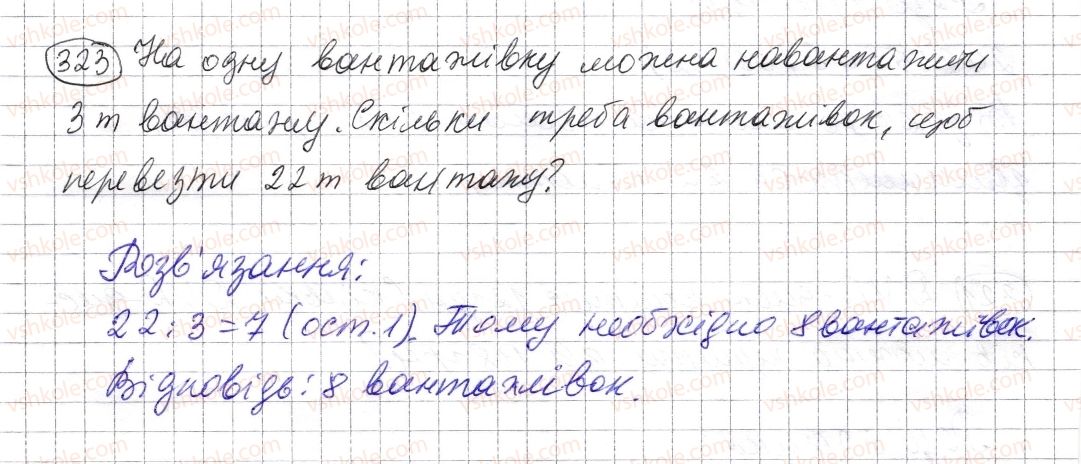 323 На одну вантажівку можна навантажити
3 т вантажу. Скільки треба вантажівок, щоб
перевезти 22 т вантажу?
Розв'язання:
22 : 3 = 7 (ост. 1). Тому необхідно 8 вантажівок.
Відповідь: 8 вантажівок.